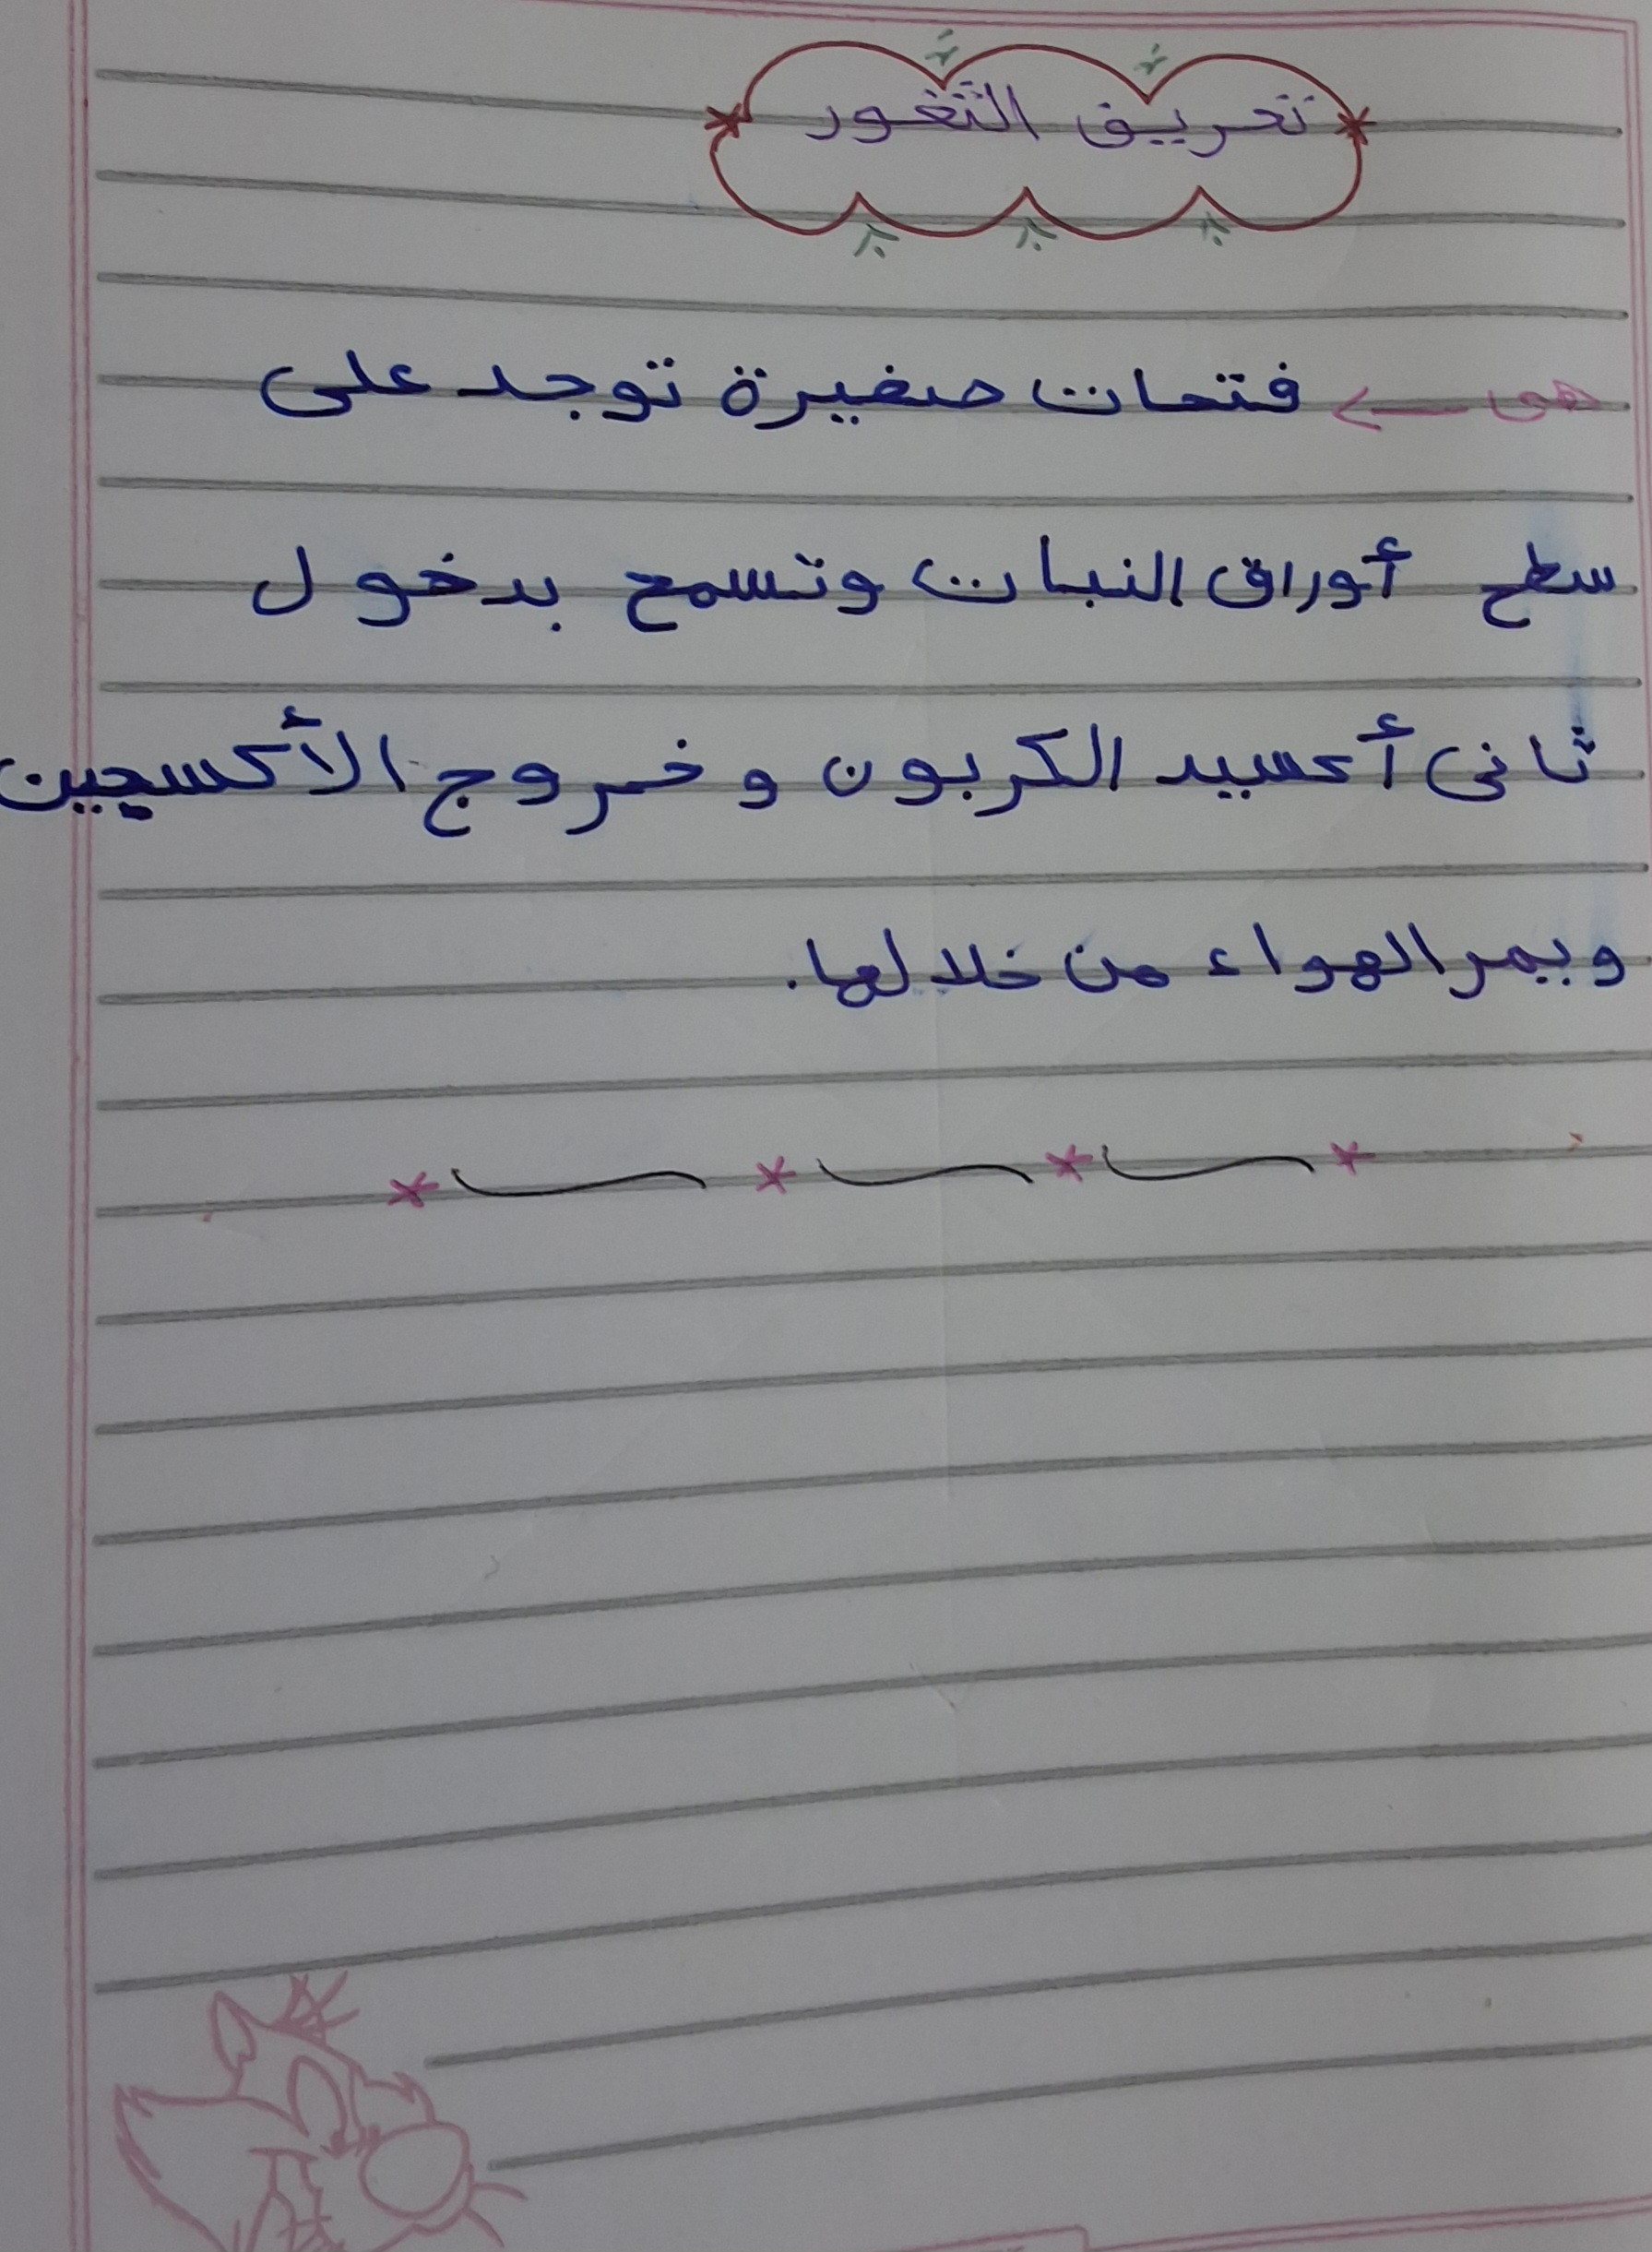 تعريف الثغور
هى ← فتحات صغيرة توجد على
سطح أوراق النبات وتسمح بدخول
ثانى أكسيد الكربون وخروج الأكسجين
ويمر الهواء من خلالها.